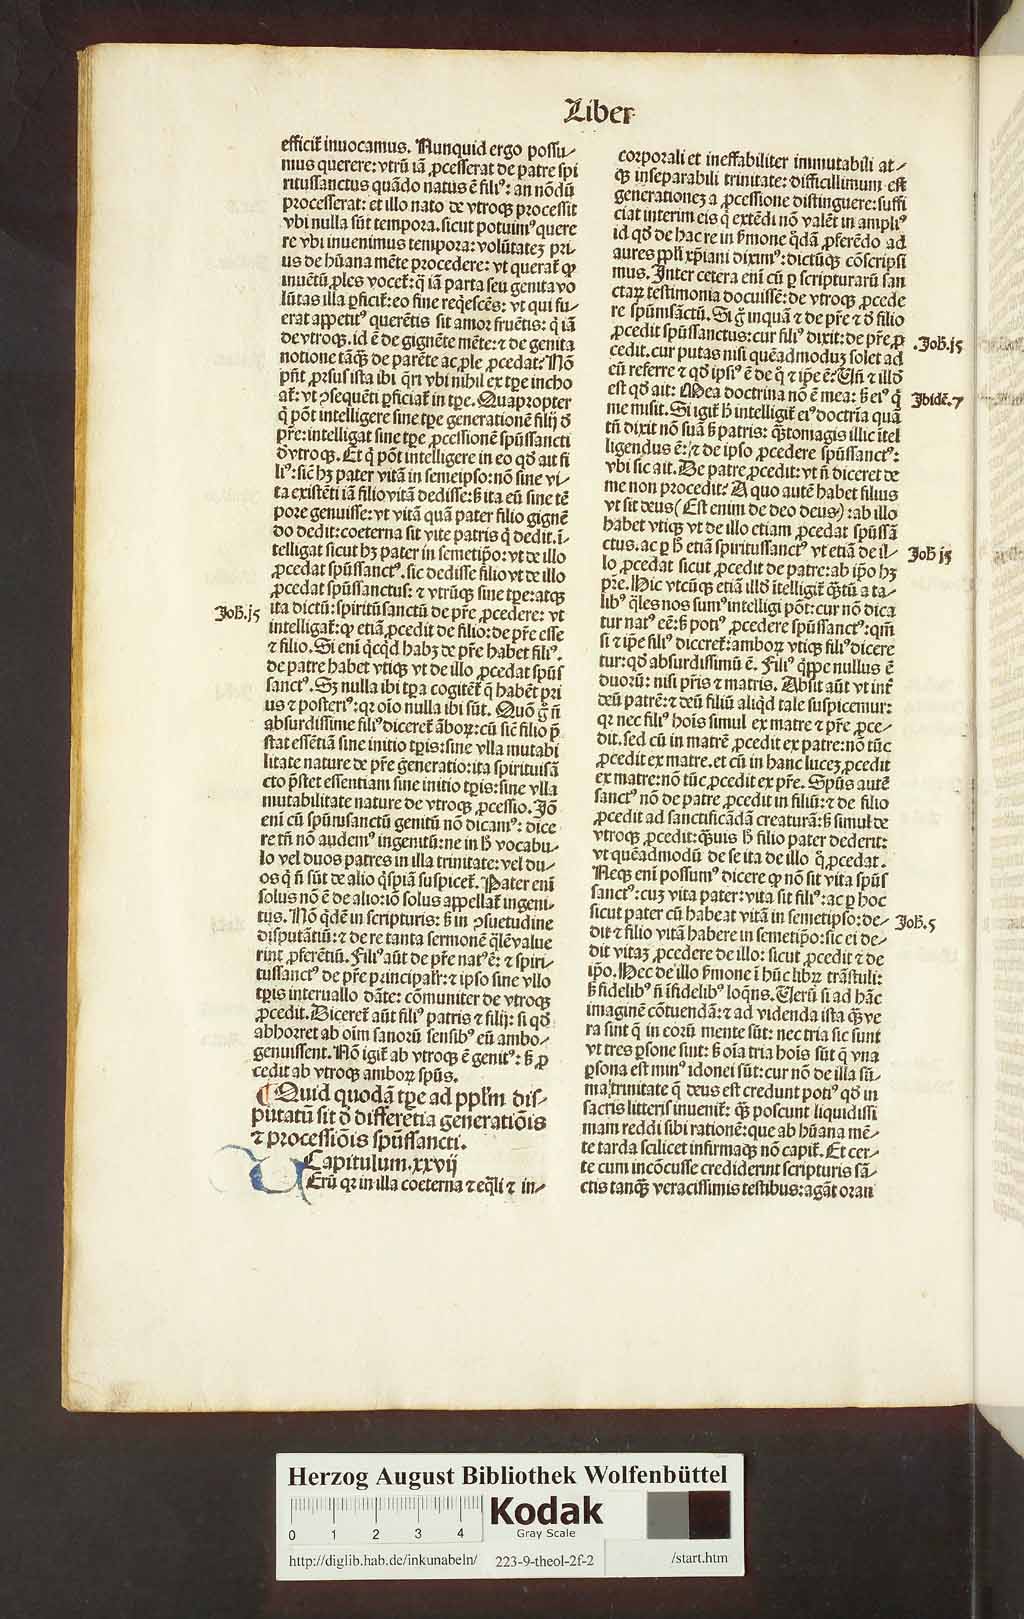 Liber
efficit̄ inuocamus. Nunquid ergo possu⸗
mus querere: vtrū iā ꝓcesserat de patre spi
ritussanctus quādo natus ē filiꝰ: an nōdū
processerat: et illo nato de vtroqꝫ processit
vbi nulla sūt tempora. sicut potuimꝰ quere
re vbi inuenimus tempora: volūtateꝫ pri⸗
us de hūana mēte procedere: vt querat̄ qꝫ
inuētū ꝓles vocet̄: q̄ iā parta seu genita vo
lūtas illa ꝑficit̄: eo fine reqescēs: vt qui fu⸗
erat appetitꝰ querētis sit amor fruētis: q̄ iā
de vtroqꝫ. id ē de gignēte mēte: ⁊ de genita
notione tāqꝫ de parēte ac ꝓle ꝓcedat? Nō
pn̄t ꝓrsus ista ibi q̄ri vbi nihil ex tꝑe incho
at̄: vt ꝯsequēti ꝑficiat̄ in tꝑe. Quapropter
q̄ pōt intelligere sine tꝑe generationē filij ď
pr̄e: intelligat sine tꝑe ꝓcessionē spūssancti
ď vtroqꝫ. Et q̄ pōt intelligere in eo qď ait fi
liꝰ: sic̄ hꝫ pater vitā in semeipso: nō sine vi⸗
ta existēti iā filio vitā dedisse: s̄ ita eū sine tē
pore genuisse: vt vitā quā pater filio gignē
do dedit: coeterna sit vite patris q̄ dedit. ī⸗
telligat sicut hꝫ pater in semetip̄o: vt de illo
ꝓcedat spūssanctꝰ. sic dedisse filio vt de illo
ꝓcedat spūssanctus: ⁊ vtrūqꝫ sine tꝑe: atqꝫ
Joh̄.j5
ita dictū: spiritūsanctū de pr̄e ꝓcedere: vt
intelligat̄: qꝫ etiā ꝓcedit de filio: de pr̄e esse
⁊ filio. Si eni q̄cqd habꝫ de pr̄e habet filiꝰ.
de patre habet vtiqꝫ vt de illo ꝓcedat spūs
sanctꝰ. Sꝫ nulla ibi tꝑa cogitet̄ q̄ habēt pri
us ⁊ posteriꝰ: qꝛ oīo nulla ibi sūt. Quō g̊ ñ
absurdissime filiꝰ diceret̄ āboꝝ: cū sic̄ filio p̄
stat essētiā sine initio tꝑis: sine vlla mutabi
litate nature de pr̄e generatio: ita spirituisā
cto p̄stet essentiam sine initio tꝑis: sine vlla
mutabilitate nature de vtroqꝫ ꝓcessio. Jō
eni cū spūmsanctū genitū nō dicamꝰ: dice
re tn̄ nō audemꝰ ingenitū: ne in h̄ vocabu⸗
lo vel duos patres in illa trinitate: vel du⸗
os q̄ ñ sūt de alio q̄spiā suspicet̄. Pater eni
solus nō ē de alio: iō solus appellat̄ ingeni⸗
tus. Nō q̄dē in scripturis: s̄ in ꝯsuetudine
disputātiū: ⁊ de re tanta sermonē q̄lē value
rint ꝓferētiū. Filiꝰ aūt de pr̄e natꝰ ē: ⁊ spiri⸗
tussanctꝰ de pr̄e principalr̄: ⁊ ipso sine vllo
tꝑis interuallo dāte: cōmuniter de vtroqꝫ
ꝓcedit. Diceret̄ aūt filiꝰ patris ⁊ filij: si qď
abhorret ab oīm sanorū sensibꝰ eū ambo⸗
genuissent. Nō igit̄ ab vtroqꝫ ē genitꝰ: s̄ ꝓ
cedit ab vtroqꝫ amboꝝ spūs.
¶ Quid quodā tꝑe ad pplm̄ dis⸗
putatū sit ď differētia generatiōis
⁊ processiōis spūssancti.
Capitulum.xxvij
VErū qꝛ in illa coeterna ⁊ eq̄li ⁊ in⸗
corporali et ineffabiliter immutabili at⸗
qꝫ inseparabili trinitate: difficillimum est
generationeꝫ a ꝓcessione distinguere: suffi
ciat interim eis q̄ extēdi nō valēt in ampliꝰ
id qď de hac re in ẜmone q̊dā ꝓferēdo ad
aures ppli xp̄iani diximꝰ: dictūqꝫ cōscripsi
mus. Inter cetera eni cū ꝑ scripturarū san
ctaꝝ testimonia docuissē: de vtroqꝫ ꝓcede
re spūmsāctū. Si g̊ inquā ⁊ de pr̄e ⁊ ď filio
ꝓcedit spūssanctus: cur filiꝰ dixit: de pr̄e ꝓ
.Joh̄.j5
cedit. cur putas nisi quēadmoduꝫ solet ad
eū referre ⁊ qď ipsiꝰ ē de q̊ ⁊ ip̄e ē? Vn̄ ⁊ illď
est qď ait: Mea doctrina nō ē mea: s̄ eiꝰ q̄
Ibidē.7
me misit. Si igit̄ h̄ intelligit̄ eiꝰ doctrīa quā
tn̄ dixit nō suā s̄ patris: qꝫtomagis illic ītel
ligendus ē: ⁊ de ipso ꝓcedere spūssanctꝰ:
vbi sic ait. De patre ꝓcedit: vt ñ diceret de
me non procedit? A quo autē habet filius
vt sit deus (Est enim de deo deus): ab illo
habet vtiqꝫ vt de illo etiam ꝓcedat spūssā
ctus. ac ꝑ h̄ etiā spiritussanctꝰ vt etiā de il⸗
Joh̄ j5
lo ꝓcedat sicut ꝓcedit de patre: ab ip̄o hꝫ
pr̄e. Hic vtcūqꝫ etiā illď ītelligit̄ qꝫtū a ta⸗
libꝰ q̄les nos sumꝰ intelligi pōt: cur nō dica
tur natꝰ eē: s̄ potiꝰ ꝓcedere spūssanctꝰ: qm̄
si ⁊ ip̄e filiꝰ diceret̄: amboꝝ vtiqꝫ filiꝰ dicere
tur: qď absurdissimū ē. Filiꝰ q̄ppe nullus ē
duorū: nisi pr̄is ⁊ matris. Absit aūt vt int̄
deū patrē: ⁊ deū filiū aliqd tale suspicemur:
qꝛ nec filiꝰ hoīs simul ex matre ⁊ pr̄e ꝓce⸗
dit. sed cū in matrē ꝓcedit ex patre: nō tūc
ꝓcedit ex matre. et cū in hanc luceꝫ ꝓcedit
ex matre: nō tūc ꝓcedit ex pr̄e. Spūs autē
sanctꝰ nō de patre ꝓcedit in filiū: ⁊ de filio
ꝓcedit ad sanctificādā creaturā: s̄ simul de
vtroqꝫ ꝓcedit: qꝫuis h̄ filio pater dederit:
vt quēadmodū de se ita de illo q̊ꝫ ꝓcedat.
Neqꝫ eni possumꝰ dicere qꝫ nō sit vita spūs
sanctꝰ: cuꝫ vita pater: vita sit filiꝰ: ac ꝑ hoc
sicut pater cū habeat vitā in semetipso: de⸗
Joh̄.5
dit ⁊ filio vitā habere in semetip̄o: sic ei de⸗
dit vitaꝫ ꝓcedere de illo: sicut ꝓcedit ⁊ de
ip̄o. Hec de illo ẜmone ī hūc libꝝ trāstuli:
s̄ fidelibꝰ ñ īfidelibꝰ loqns. Verū si ad hāc
imaginē cōtuendā: ⁊ ad videnda ista qꝫve
ra sint q̄ in eorū mente sūt: nec tria sic sunt
vt tres ꝑsone sint: s̄ oīa tria hoīs sūt q̄ vna
ꝑsona est minꝰ idonei sūt: cur nō de illa sū⸗
ma trinitate q̄ deus est credunt potiꝰ qď in
sacris litteris inuenit̄: qꝫ poscunt liquidissi
mam reddi sibi rationē: que ab hūana mē⸗
te tarda scilicet infirmaqꝫ nō capit̄. Et cer⸗
te cum incōcusse crediderint scripturis sā⸗
ctis tanqꝫ veracissimis testibus: agāt oran
Herzog August Bibliothek Wolfenbüttel
0 1 2 3 4
Kodak
Gray Scale
http://diglib.hab.de/inkunabeln/ 223-9-theol-2f-2 /start.htm